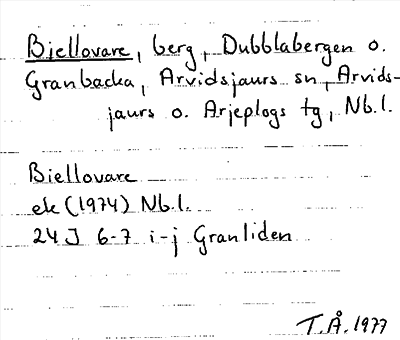 Bjellovare, berg, Dubblabergen o.
Granbacka, Arvidsjaurs sn, Arvids-
jaurs o. Arjeplogs tg, Nb.l.
Biellovare
ek (1974) Nb.l.
24 J 6-7 i-j Granliden
T.Å. 1977